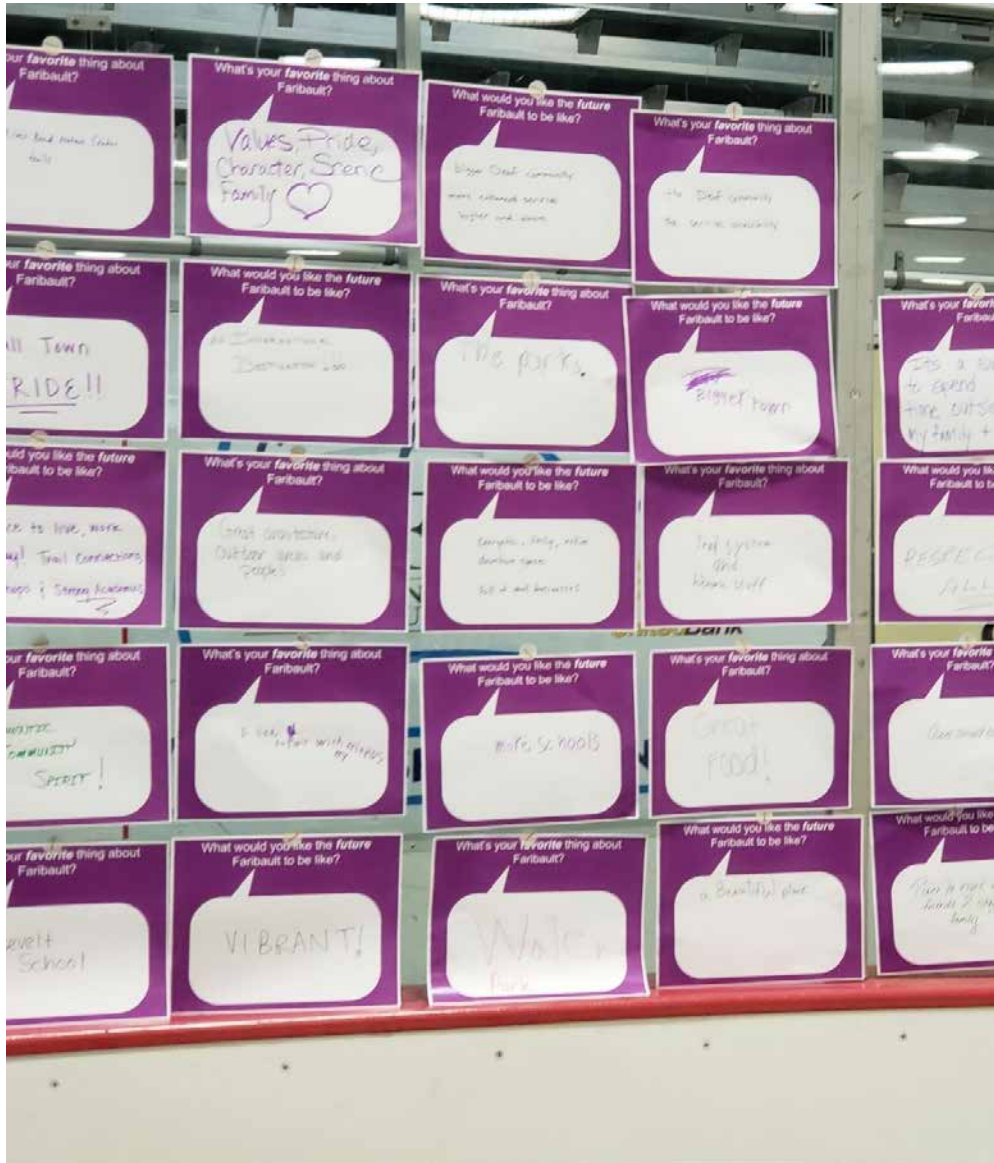 ur favorite thing about
Faribault?
Bend Nature Center
trails
What's your favorite thing about
Faribault?
Values, Pride,
Character, Scenic
Family
What would you like the future
Faribault to be like?
bigger Deaf community
more enhanced service
higher and above
What's your favorite thing about
Faribault?
the Deaf community
the service availability
ur favorite thing about
Faribault?
ll Town
RIDE!!
What would you like the future
Faribault to be like?
Destination
What's your favorite thing about
Faribault?
The parks.
What would you like the future
Faribault to be like?
Bigger town
What's your favorite
Faribau
It's a
to spend
time outs
my family +
uld you like the future
ibault to be like?
ce to live, work
y! Trail connections,
Strong Academics
What's your favorite thing about
Faribault?
Great architecture,
Outdoor areas and
people
What would you like the future
Faribault to be like?
Energetic, lively, active
downtown space
full of small businesses
What's your favorite thing about
Faribault?
Trail system
and
Historic stuff
What would you lik
Faribault to b
RESPEC
ALL
Bank
ur favorite thing about
Faribault?
COMMUNITY
SPIRIT!
What's your favorite thing about
Faribault?
with friends
my
What would you like the future
Faribault to be like?
more schools
What's your favorite thing about
Faribault?
Great
FOOD!
What's your favorite
Faribault?
ur favorite thing about
Faribault?
evelt
School
What would you like the future
Faribault to be like?
VIBRANT!
What's your favorite thing about
Faribault?
Water
Park
What would you like the future
Faribault to be like?
a Beautiful place
What would you like
Faribault to be
Place to
friends &
family